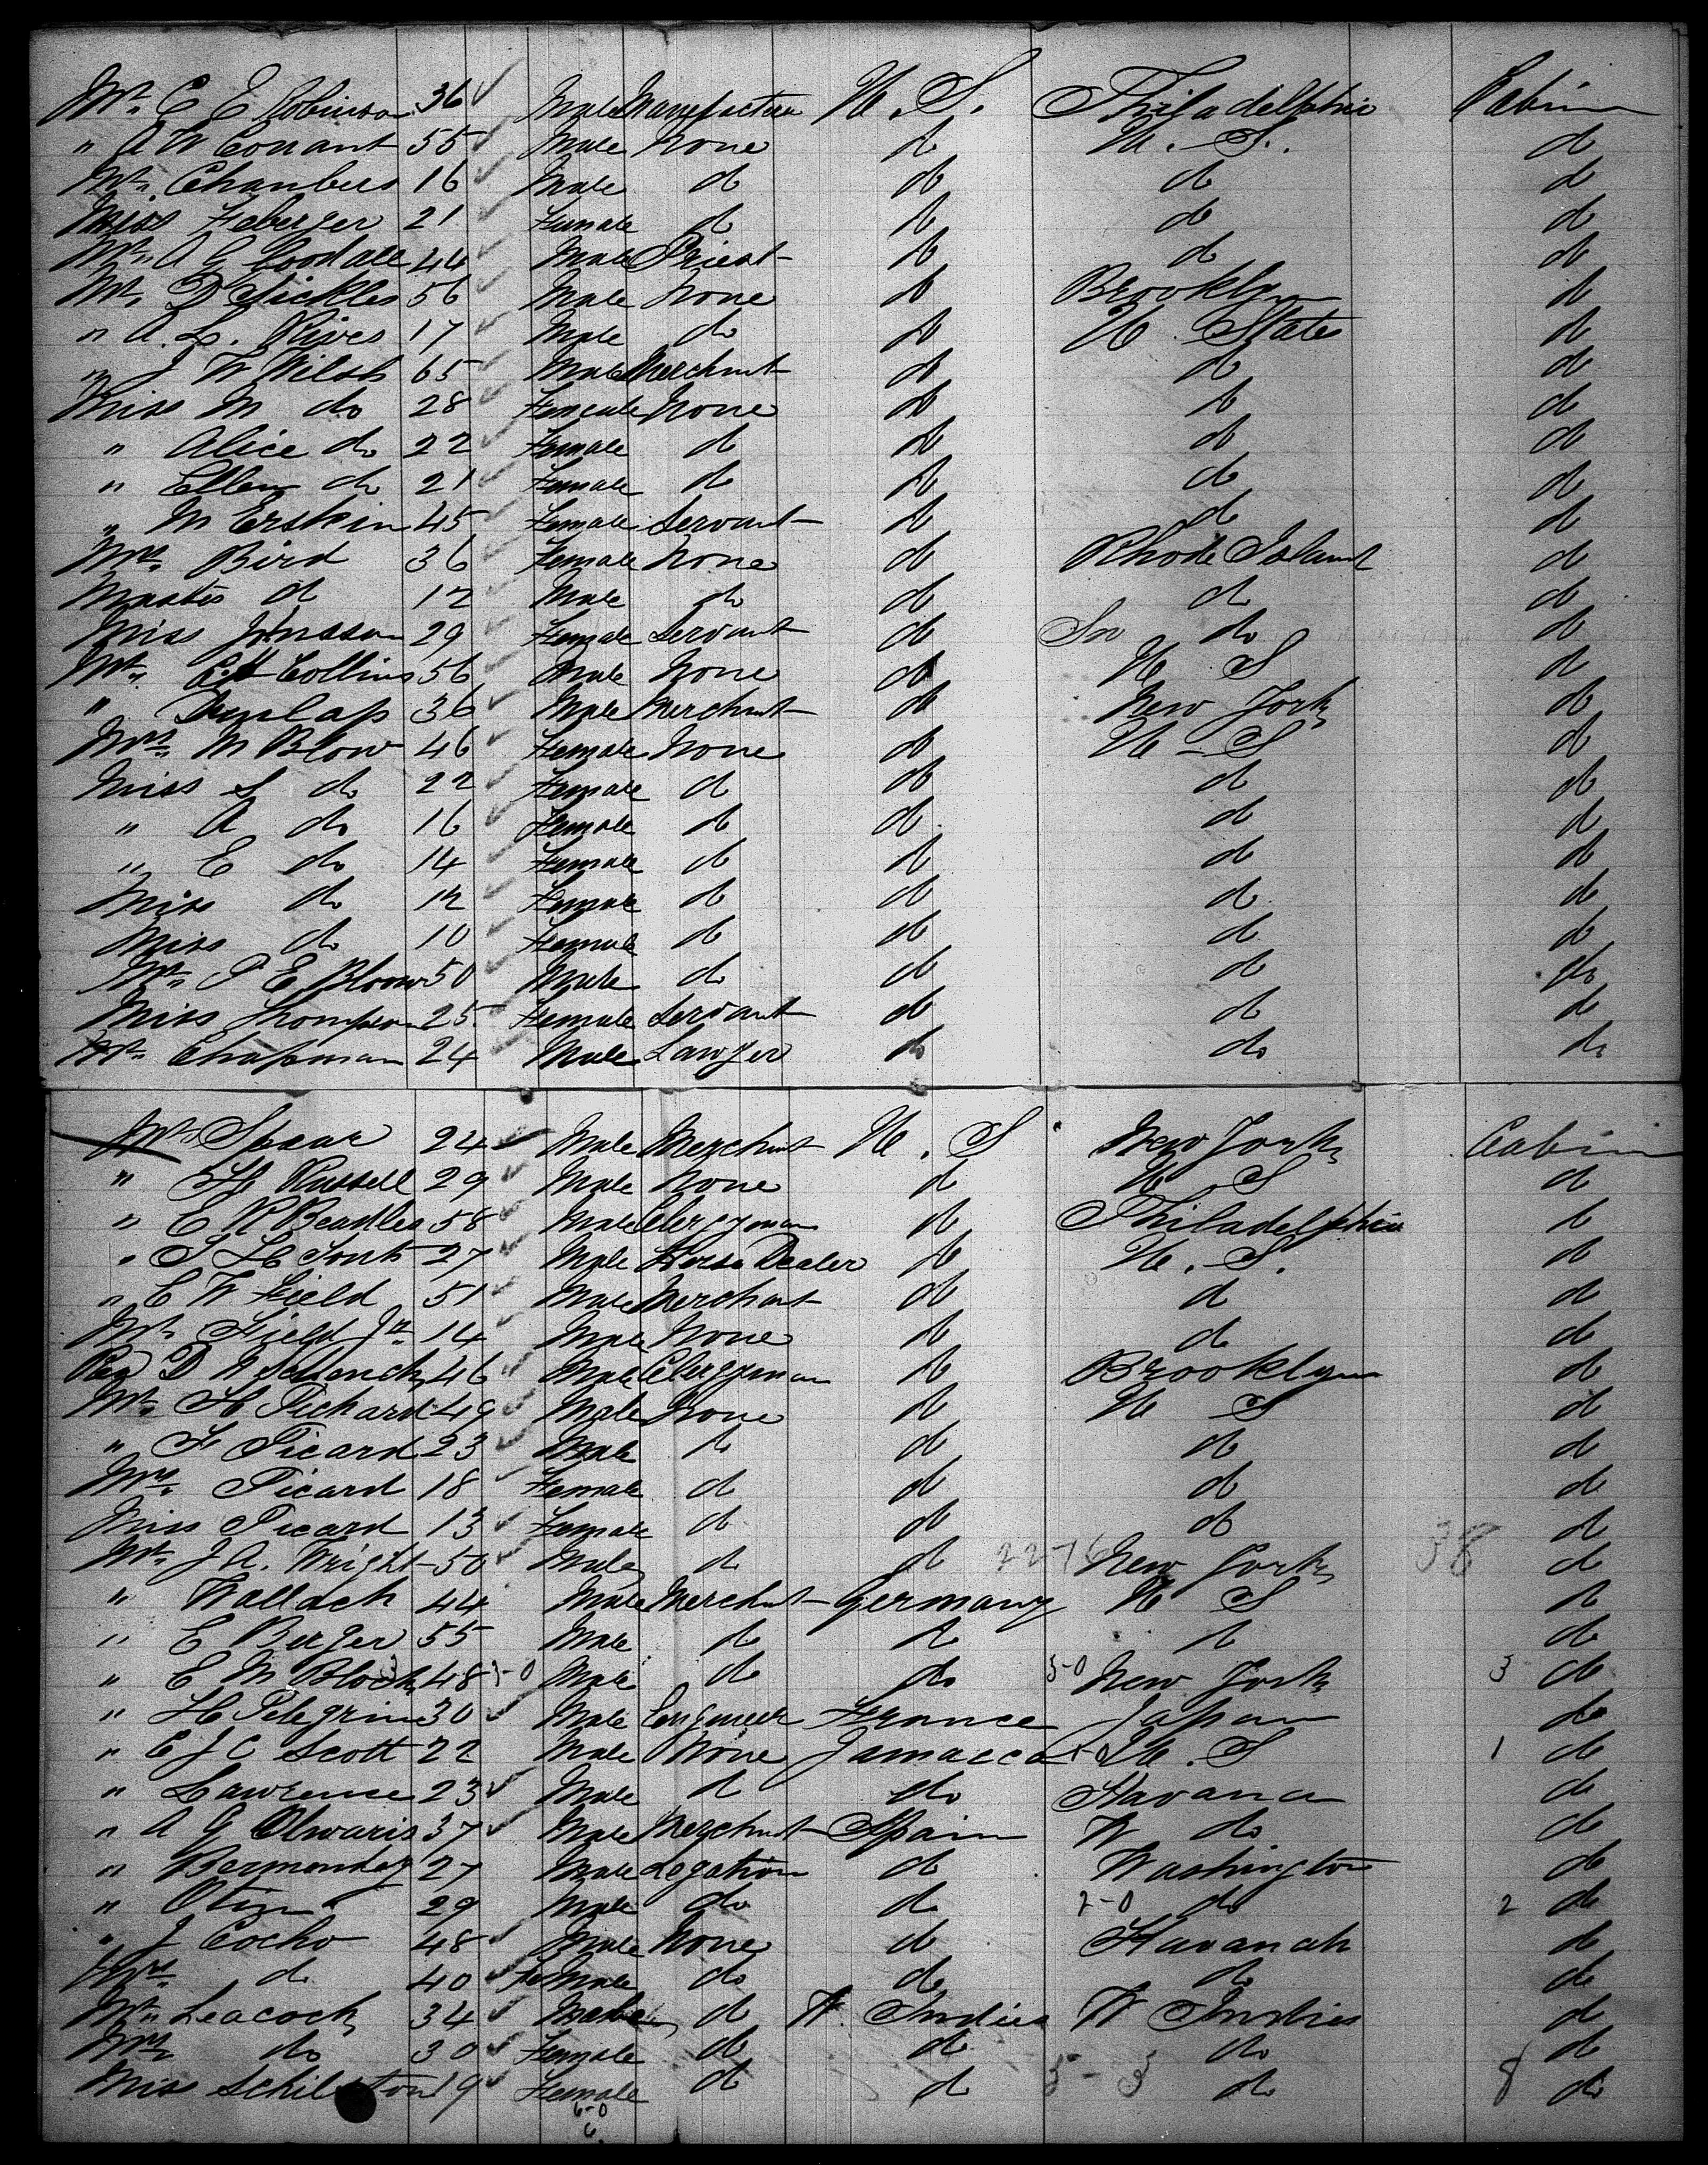 Mr. C E Robinson 36 Male Manufacturer U. S. Philadelphia Cabin
" A W Conant 55 Male None do U. S. do
Mr. Chambers 16 Male do do do do
Miss Feberger 21 Female do do do do
Mr. A G Goodall 44 Male Priest do do do
Mr. D Sickles 56 Male None do Brooklyn do
" A. L. Rives 17 Male do do U State do
" J W Wilsh 65 Male Merchant do do do
Miss M do 28 Female None do do do
" Alice do 22 Female do do do do
" Ellen do 21 Female do do do do
" M Erskin 45 Female Servant do do do
Mrs. Bird 36 Female None do Rhode Island do
Master do 12 Male do do do do
Miss Jonsson 29 Female Servant do do do
Mr. Collins 56 Male None do U S do
" Dunlap 36 Male Merchant do New York do
Mrs. M Blow 46 Female None do U - S do
Miss S do 22 Female do do do do
" A do 16 Female do do do do
" E do 14 Female do do do do
Miss do 12 Female do do do do
Miss do 10 Female do do do do
Mr. P E Bloow 50 Male do do do do
Miss Thompson 25 Female Servant do do do
Mr. Chapman 24 Male Lawyer do do do
Mr. Spear 24 Male Merchant U. S New York Cabin
" H Russell 29 Male None do U. S do
" E R Beadles 58 Male Clergyman do Philadelphia do
" 27 Male Horse Dealer do U. S. do
" C W. Field 51 Male Merchant do do do
Mr. Field Jr. 14 Male None do do do
Rev D N Schenck 46 Male Clergyman do Brooklyn do
Mr. H Pichard 49 Male None do U S do
" F Picard 23 Male do do do do
Mrs. Picard 18 Female do do do do
Miss Picard 13 Female do do do do
Mr. J A. Wright 50 Male do do 2276 New York 38 do
" Wallach 44 Male Merchant Germany U S do
" E Berger 55 Male do do do do
" E M Bloch 48 3-0 Male do do 5-0 New York 3 do
" H Pelegrin 30 Male Engineer France Japan do
" C J C Scott 22 Male None Jamaica U. S 1 do
" Lawrence 23 Male do do Havana do
" A G Olwaris 37 Male Merchant Spain do do
" Bermondez 27 Male Legation do Washington do
" 29 Male do do 2-0 do 2 do
" J Cocho 48 Male None do Havanah do
Mrs. do 40 Female do do do do
Mr. Leacock 34 Male do W. Indies W Indies do
Mrs do 30 Female do do do do
Miss 19 Female do do 5-3 do 8 do
6-0
6